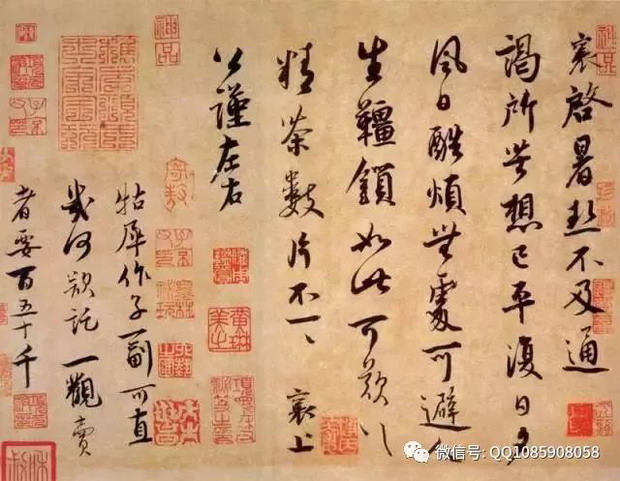 襄啓暑熱不及通
謁所苦想已平復日夕
風日酷煩無處可避人
生韁鎖如此可歎〻
精茶數片不一〻 襄上
公謹左右
牯犀作子一副可直
幾何欲託一觀賣
者要百五十千
神品
黃琳美之
微信号: QQ1085908058